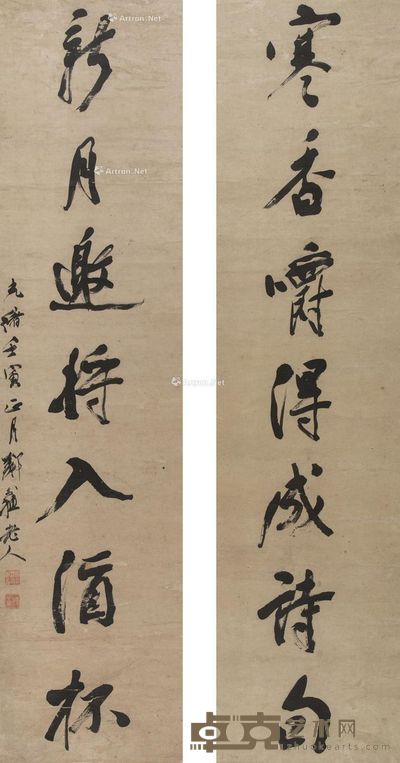 寒香嚼得成詩句
新月邀將入酒杯
光緒壬寅正月鄰蘇老人
Artron.Net
Artron.Net
Artron.Net
Artron.Net
卓克艺术网
zhuokearts.com